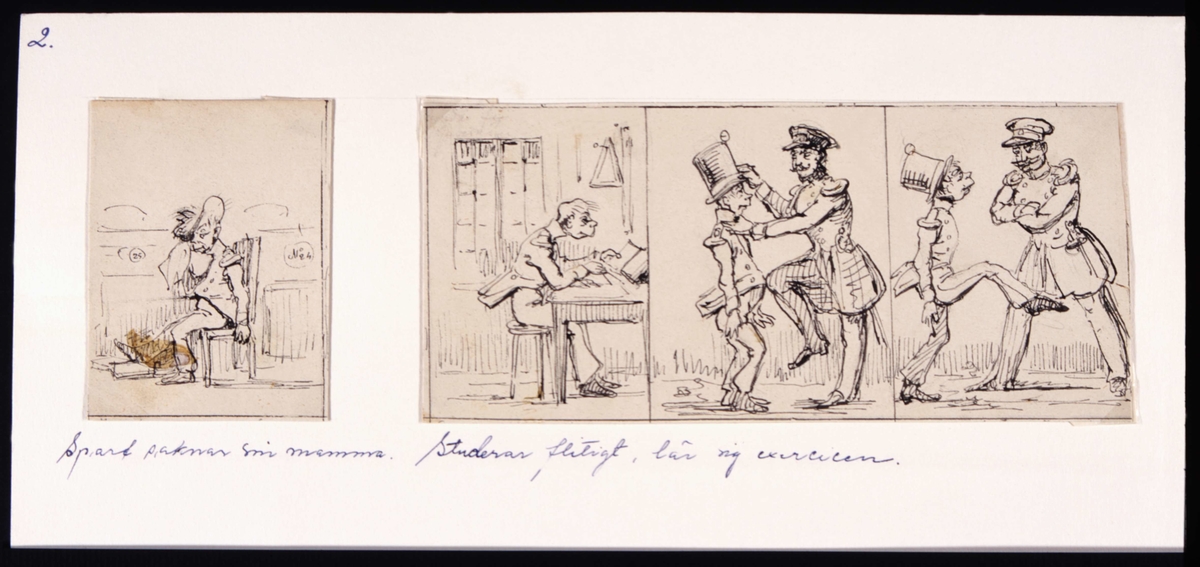 2.
25
No 24
Spard saknar sin mamma.
Studerar flitigt, lär sig exercicen.